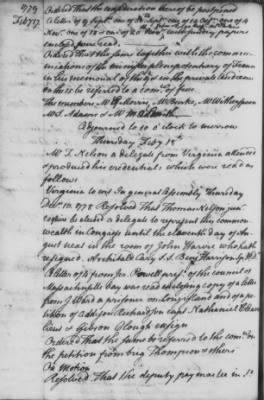 Ordered That the consideration thereof be postponed
Nov. one of 13 & one of 20 Nov.
papers
were read
Ordered That the same together with the commu-
nications of the minister plenipotentiary of France
in his memorial of the 9 & in the private audience
on the be referred to a comee of five
The members Mr G Morris, Mr Burke, Mr Witherspoon
Mr S Adams & Mr M Smith
Adjourned to 10 o'Clock to morrow
Thursday Feby 18
Mr T. Nelson a delegate from Virginia attended
& produced his credentials which were read as
follows
Virginia to wit In general Assembly Thursday
Decr 10. 1778 Resolved That Thomas Nelson jun
esqr be elected a delegate to represent this common
wealth in Congress until the eleventh day of Au
gust next in the room of John Harvie who hath
resigned. Archibald Cary S.S. Benj Harrison Sp H D
A letter of 2 from Jer Powell presidt of the council of
Massachusetts bay was read enclosing copy of a letter
from J Ward a prisoner on long island and of a pe
tition of Addison Richardson capt Nathaniel
& Gibson Clough ensign
Ordered That the same be referred to the comee on
the petition from brig Thompson & others
On Motion
Resolved That the deputy pay master in So